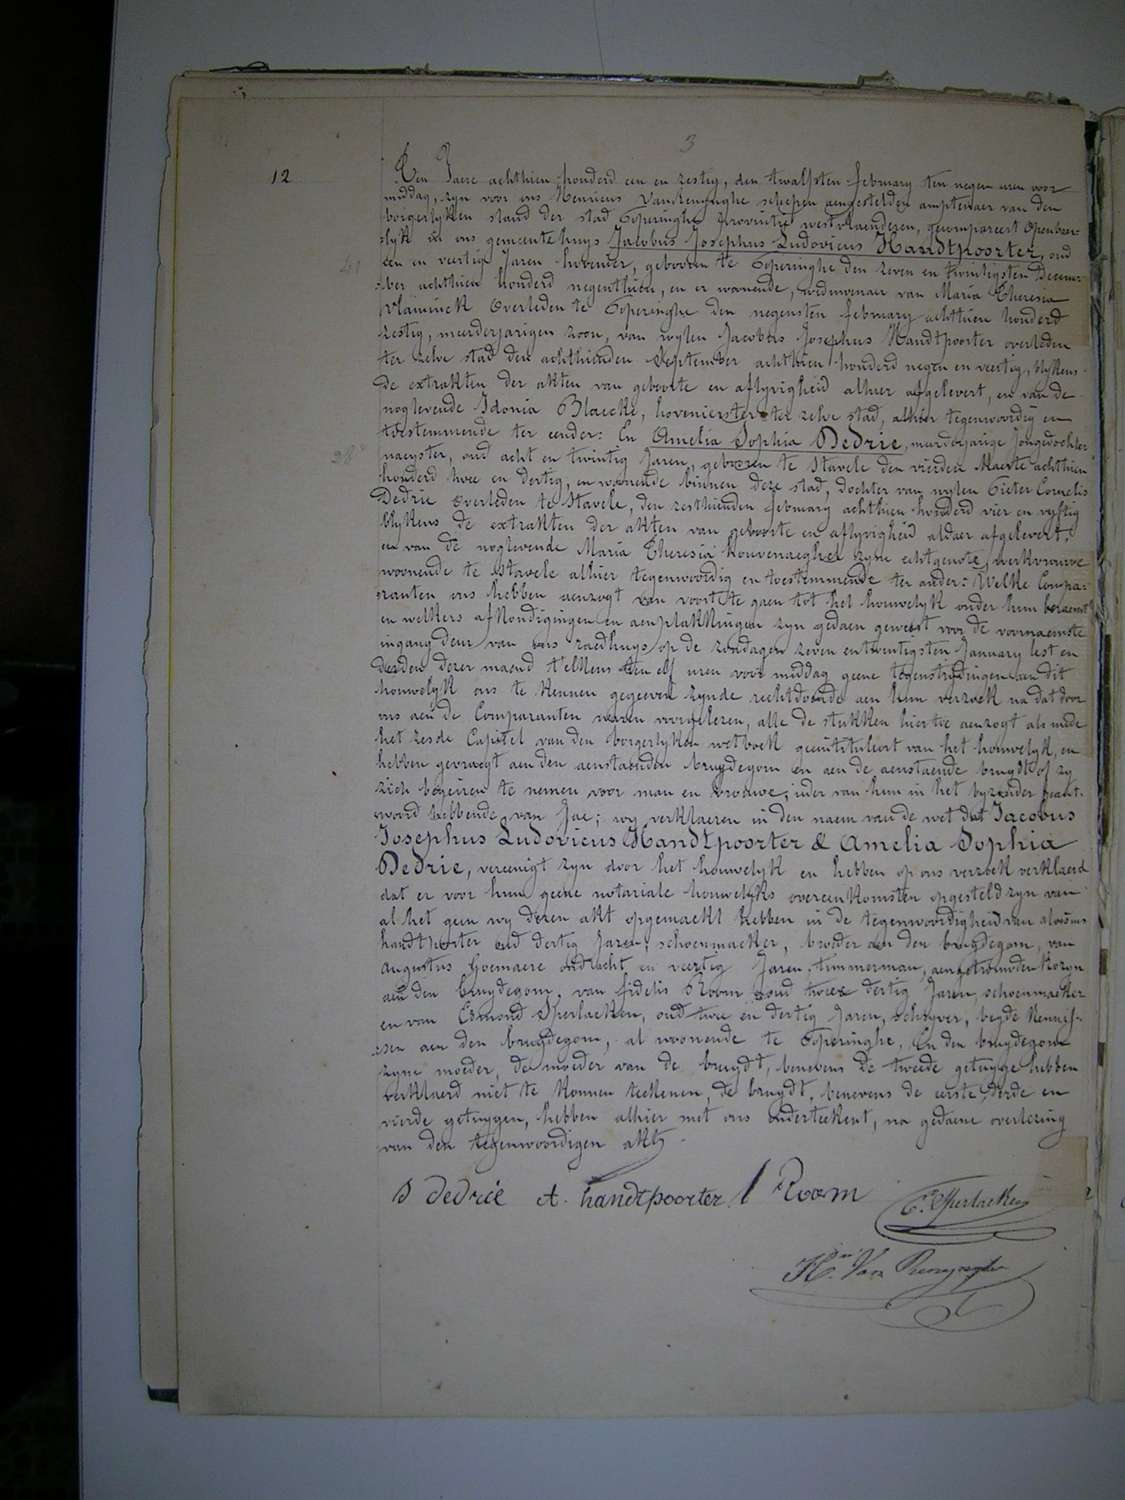 3
12
Ten Jaere achthien honderd een en zestig, den twalfsten february ten negen uren voor
middag, zyn voor ons Henricus Vanrenynghe schepen aengestelden amptenaer van den
borgerlyken stand der stad Poperinghe provintie westvlaenderen, gecompareert openbaer-
lyk in ons gemeentehuys Jacobus Josephus Ludovicus Handtpoorter, oud
41
een en veertig Jaren hovenier, gebooren te Poperinghe den zeven en twintigsten Decem-
ber achthien honderd negenthien, en er woonende, weduwenaer van Maria Theresia
Vlaminck overleden te Poperinghe den negensten february achthien honderd
zestig, meerderjarigen zoon, van wylen Jacobus Josephus Handtpoorter overleden
ter zelve stad den achthienden September achthien honderd negen en veertig, blykens
de extrakten der akten van geboorte en aflyvigheid alhier afgelevert, en van de
noglevende Idonia Blaecke, hovenierster ter zelve stad, alhier tegenwoordig en
toestemmende ter eender: En Amelia Sophia Dedrie, meerderjarige jongedochter
28
naeyster, oud acht en twintig Jaren, geboren te Stavele den vierden Maerte achthien
honderd twee en dertig, en woonende binnen deze stad, dochter van wylen Pieter Cornelis
Dedrie overleden te Stavele, den zesthienden february achthien honderd vier en vyftig
blykens de extrakten der akten van geboorte en aflyvigheid aldaer afgelevert,
en van de noglevende Maria Theresia Couvenaeghel zyne echtgenote, werkvrouwe
woonende te Stavele alhier tegenwoordig en toestemmende ter ander: Welke Compa-
ranten ons hebben aenzogt van voorts te gaen tot het houwelyk onder hun beraemt
en welkers afkondigingen en aenplakkingen zyn gedaen geweest voor de voornaemste
ingang deur van ons raedhuys op de zondagen zeven en twintigsten January lest en
derden dezer maend t'elkens ten elf uren voor middag geene tegenstrydingen aan dit
houwelyk ons te kennen gegeeven zynde rechtdoende aen hun verzoek na dat door
ons aen de Comparanten waren voorgelezen, alle de stukken hiertoe aenzogt als mede
het zesde Capitel van den borgerlyken wetboek geintituleert van het houwelyk, en
hebben gevraegt aen den aenstaenden bruydegom en aen de aenstaende bruydt of zy
zich begeiren te nemen voor man en vrouwe; ieder van hun in het byzonder geant-
woord hebbende van Jae; wy verklaeren in den naem van de wet dat Jacobus
Josephus Ludovicus Handtpoorter & Amelia Sophia
Dedrie, vereenigt zyn door het houwelyk en hebben op ons verzoek verklaerd
dat er voor hun geene notariale houwelyks overeenkomsten opgesteld zyn van
al het geen wy dezen akt opgemaekt hebben in de tegenwoordigheid van aloisius
handtpoorter oud dertig Jaren, schoenmaeker, broeder aen den bruydegom, van
augustus Goemaere oud acht en veertig Jaren, timmerman, aengetrouwden kozyn
aen den bruydegom, van fidelis Room oud twee dertig Jaren, schoenmaeker
en van Edmond Sperlaeken, oud twee en dertig Jaren, schryver, beyde kennis-
sen aen den bruydegom, al woonende te Poperinghe, En den bruydegom
zyne moeder, de moeder van de bruydt, benevens de tweede getuyge hebben
verklaerd niet te konnen teekenen, de bruydt, benevens de eerste, derde en
vierde getuygen, hebben alhier met ons onderteekent, na gedaene overlezing
van den tegenwoordigen akt
S dedrie A. handtpoorter f Room Ed. Sperlaeken
Hri Van Renynghe